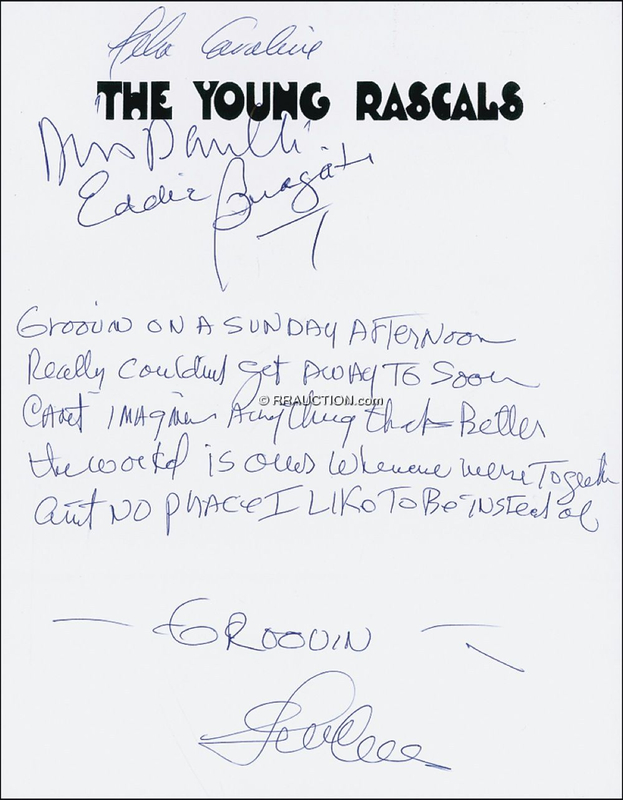 Felix Cavaliere
THE YOUNG RASCALS
Dino Danelli
Eddie Brigati
Groovin ON A SUNDAY AFTERNOON
Really Couldnt get AWAY TO Soon
© RRAUCTION.com
CAnt IMAgine Anything that Better
the world is ours whenever were Together
aint NO PLACE I LIKe TO Be INStead of
GROOVIN